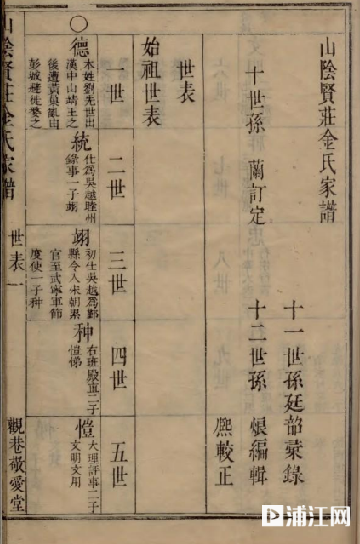 山陰賢莊金氏家譜
十一世孫廷韶彙錄
十世孫 蘭訂定
十二世孫
煨編輯
熈較正
世表
始祖世表
一世
二世
三世
四世
五世
○德
本姓劉先世出
漢中山靖王之
後遭黃巢亂由
彭城
統
仕爲吳越睦州
錄事一子翊
翊
初仕吳越爲
縣令入宋朝累
官至武寧軍節
度使一子种
种
右班殿直二子
愷悌
愷
大理評事二子
文明文用
山陰賢莊金氏家譜
世表
一
輗巷敬愛堂
浦江网